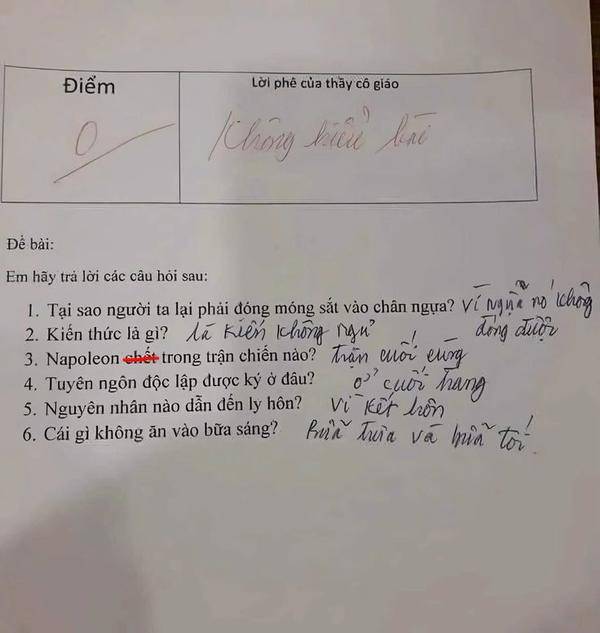 Điểm
Lời phê của thầy cô giáo
0
Không hiểu bài
Đề bài:
Em hãy trả lời các câu hỏi sau:
1. Tại sao người ta lại phải đóng móng sắt vào chân ngựa? Vì ngựa nó không đóng được
2. Kiến thức là gì? là kiến không ngủ
3. Napoleon chết trong trận chiến nào? trận cuối cùng
4. Tuyên ngôn độc lập được ký ở đâu? ở cuối trang
5. Nguyên nhân nào dẫn đến ly hôn? Vì kết hôn
6. Cái gì không ăn vào bữa sáng? Bữa trưa và bữa tối.